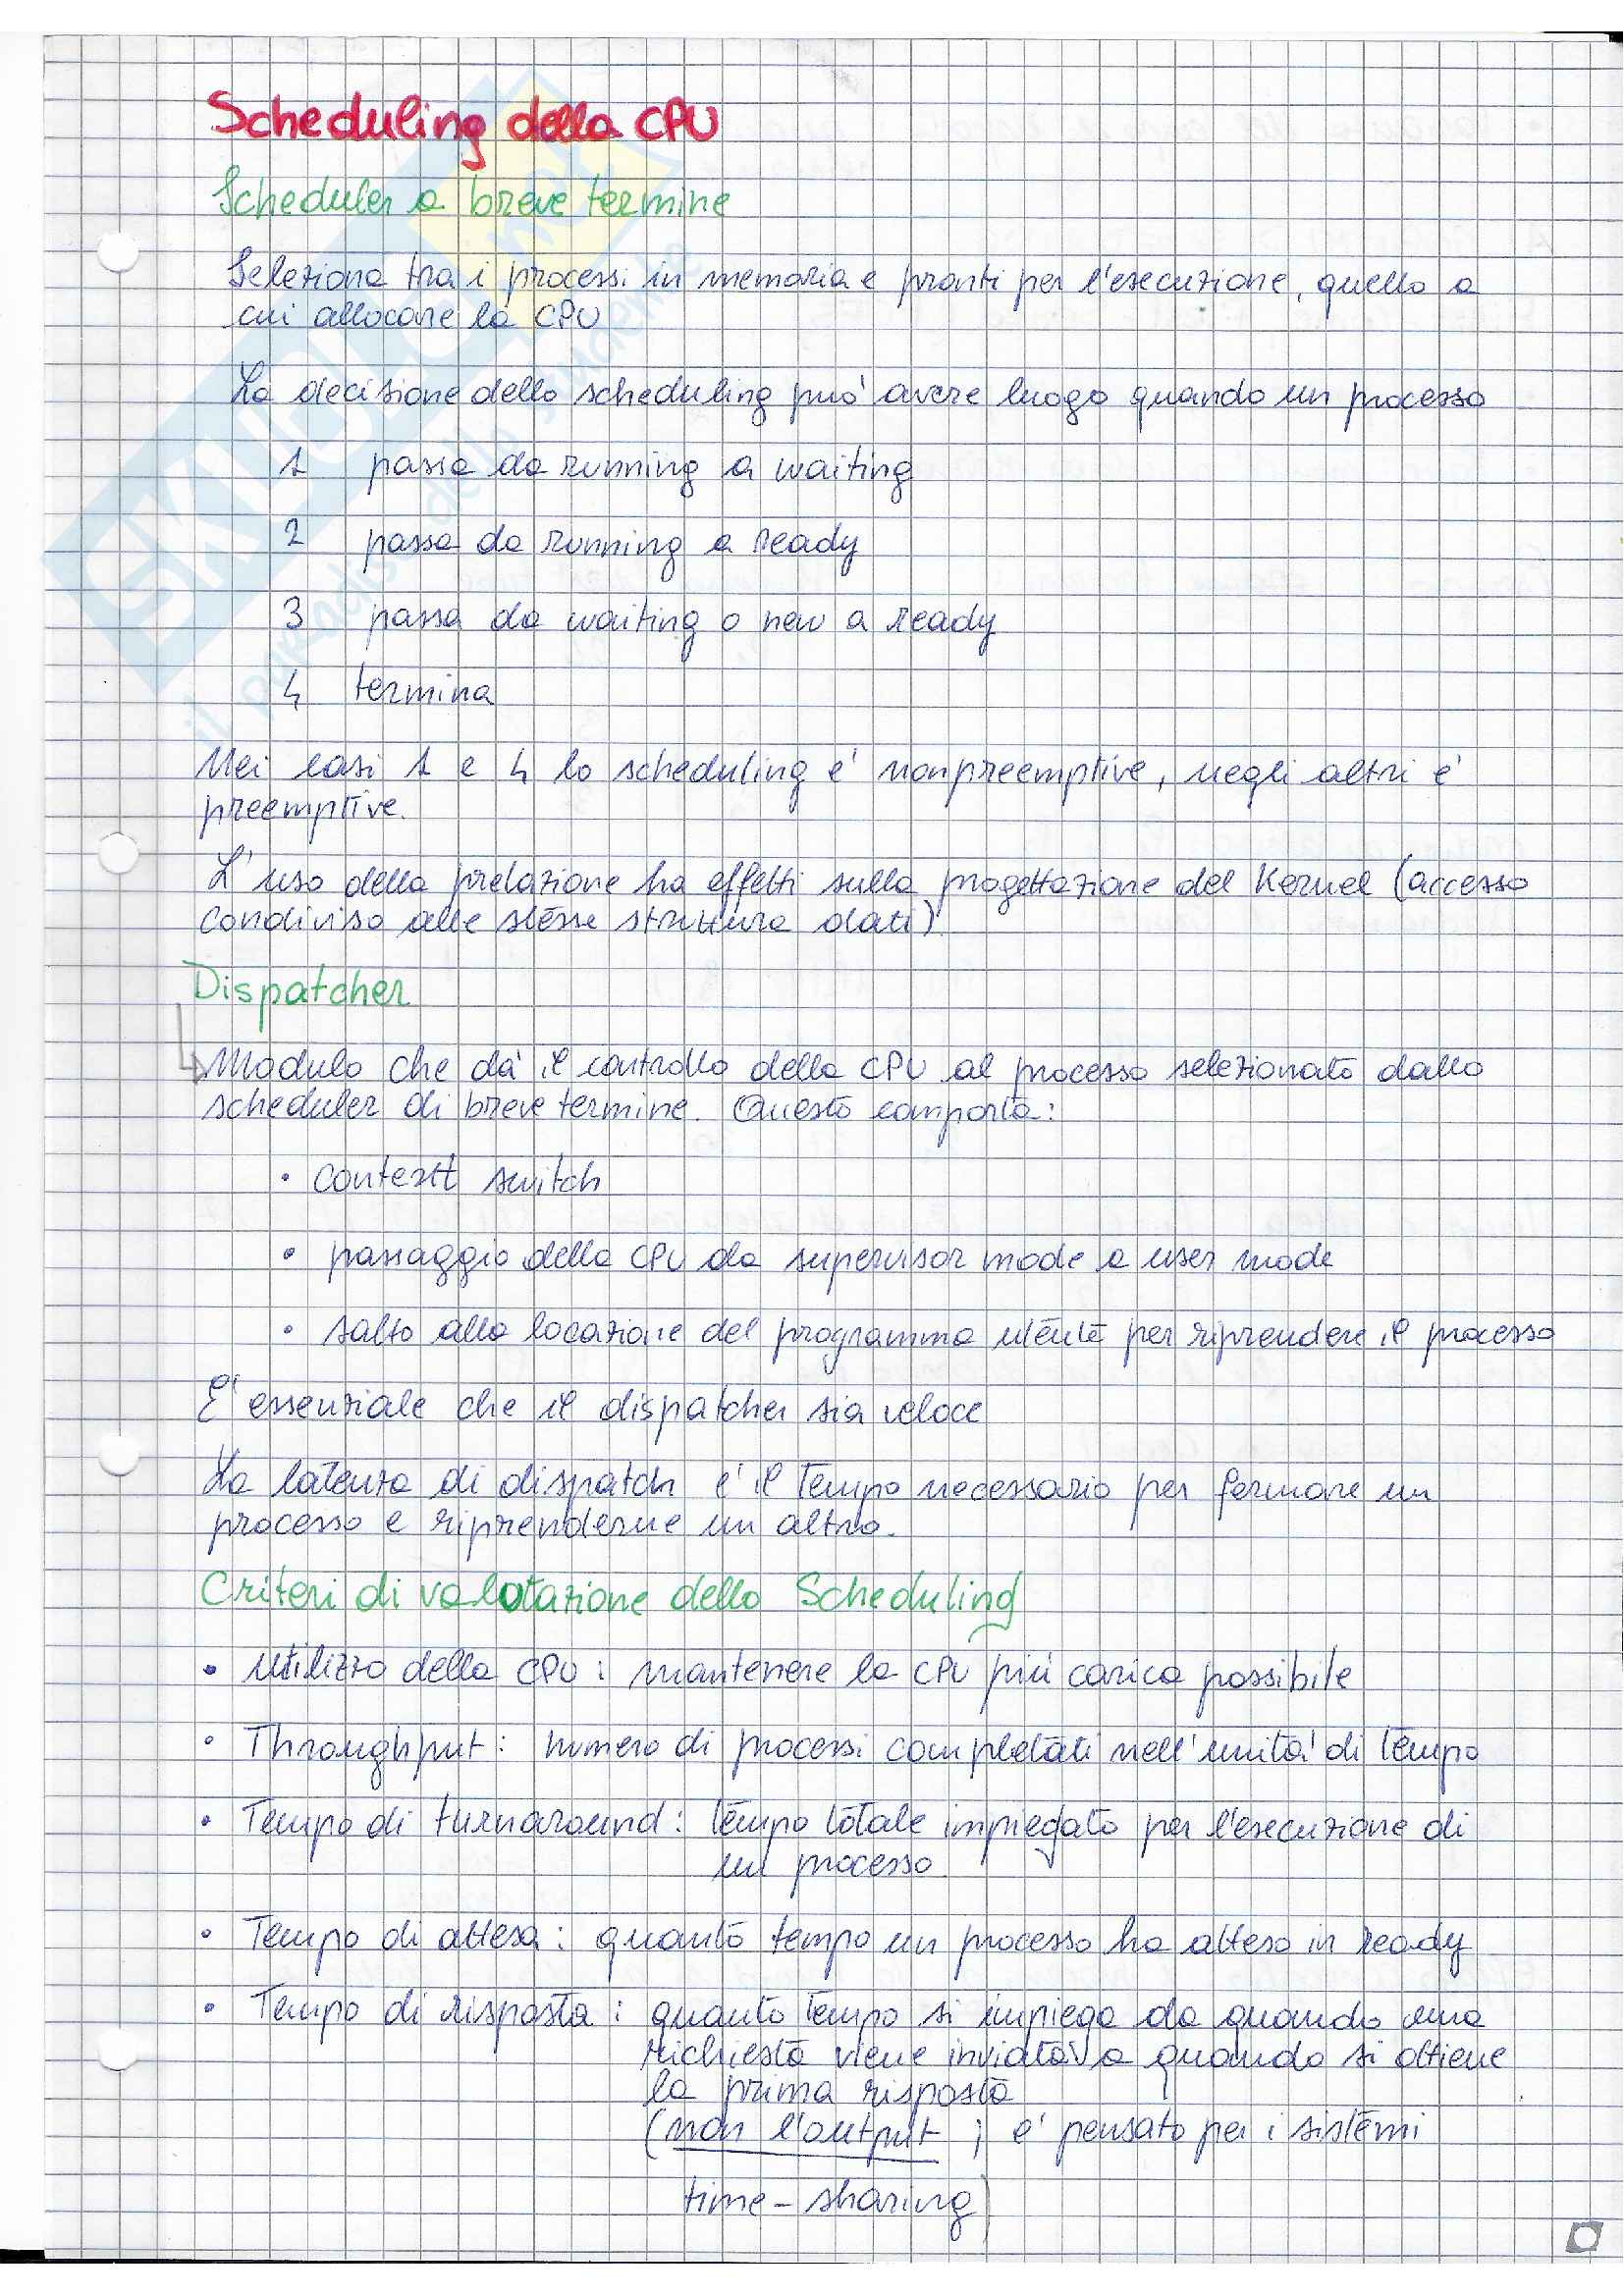 Scheduling della CPU
Scheduler a breve termine
Seleziona tra i processi in memoria e pronti per l'esecuzione, quello a
cui allocare la CPU
La decisione dello scheduling può avere luogo quando un processo
1 passa da running a waiting
2 passa da running a ready
3 passa da waiting o new a ready
4 termina
Nei casi 1 e 4 lo scheduling è nonpreemptive, negli altri è
preemptive.
L'uso della prelazione ha effetti sulla progettazione del Kernel (accesso
condiviso alle stesse struttura dati)
Dispatcher
Modulo che dà il controllo della CPU al processo selezionato dallo
scheduler di breve termine. Questo comporta:
• contextt switch
• passaggio della CPU da supervisor mode a user mode
• salto alla locazione del programma utente per riprendere il processo
E' essenziale che il dispatcher sia veloce
La latenza di dispatch è il tempo necessario per fermare un
processo e riprenderne un altro.
Criteri di valutazione dello Scheduling
• Utilizzo della CPU : mantenere la CPU più carica possibile
• Throughput : numero di processi completati nell'unità di tempo
• Tempo di turnaround : tempo totale impiegato per l'esecuzione di
un processo
• Tempo di attesa : quanto tempo un processo ha atteso in ready
• Tempo di risposta : quanto tempo si impiega da quando una
richiesta viene inviata a quando si ottiene
la prima risposta
(non l'output ; è pensato per i sistemi
time-sharing)
SKUOLA.net
il paradiso dello studente